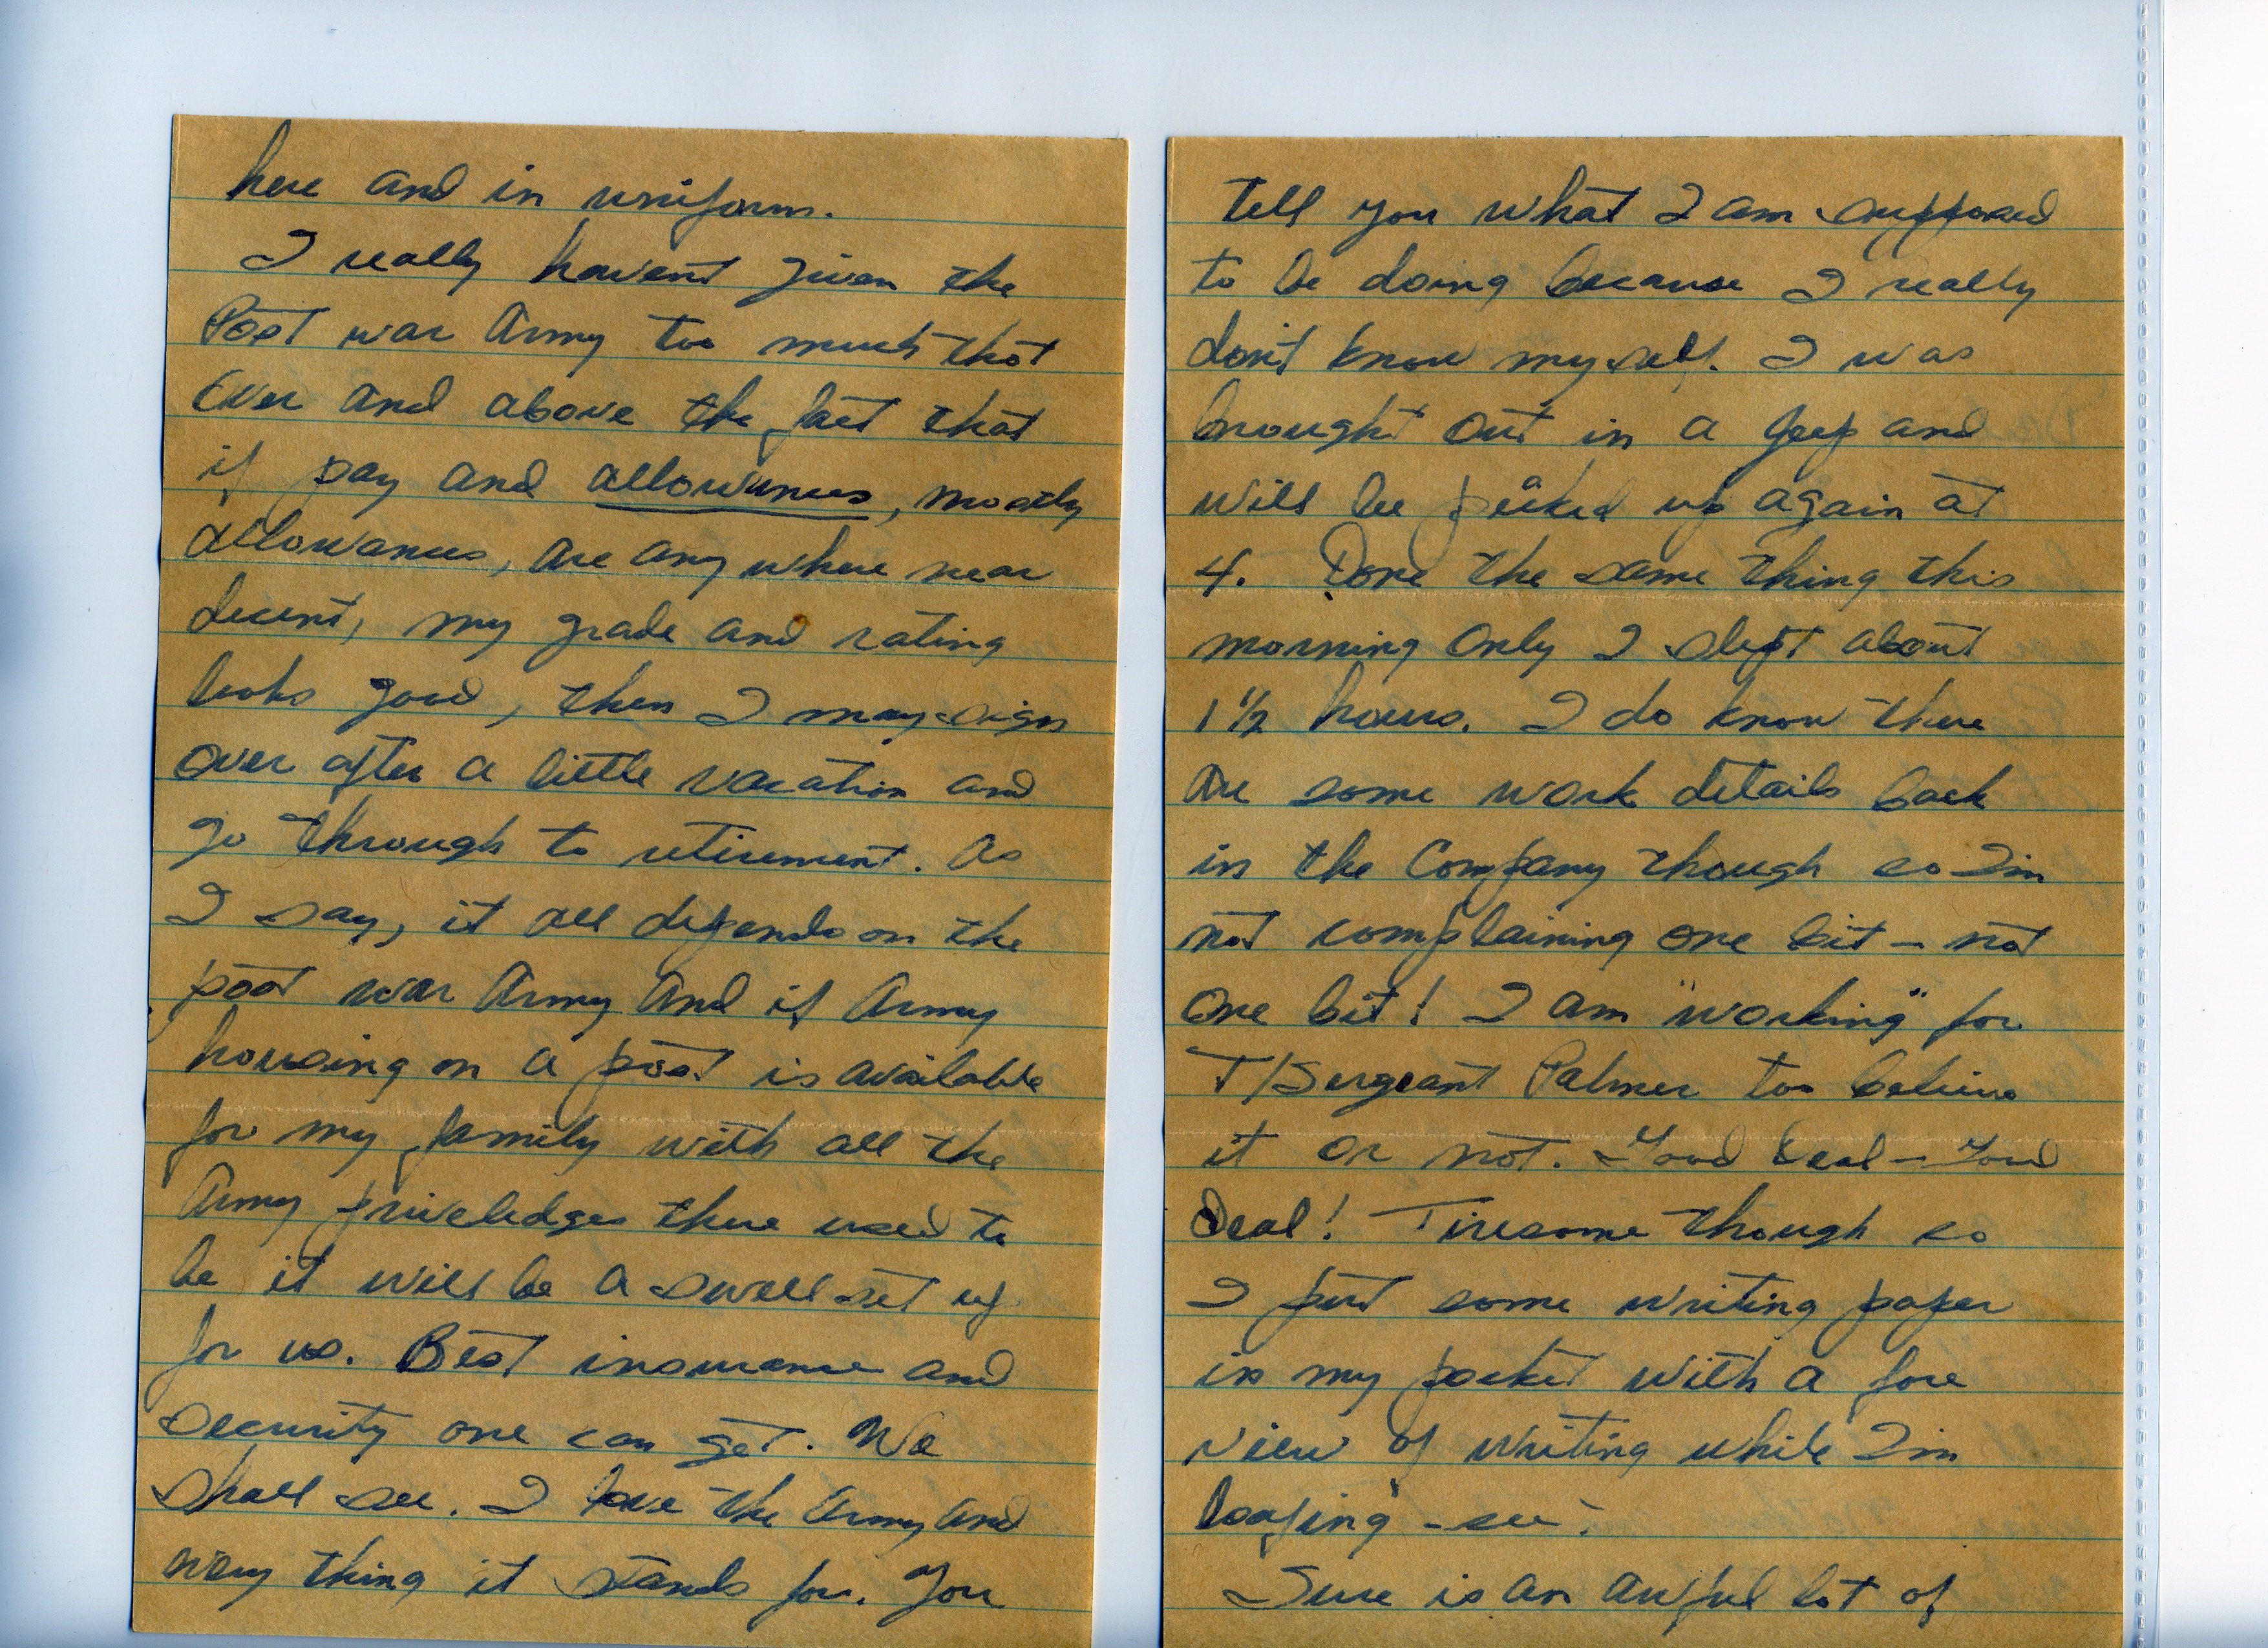 here and in uniform.
I really havent given the
Post war Army too much thot
over and above the fact that
if pay and allowances, mostly
allowances, are any where near
decent, my grade and rating
looks good, then I may sign
over after a little vacation and
go through to retirement. As
I say, it all depends on the
post war Army and if Army
housing on a post is available
for my family with all the
Army priveledges there used to
be it will be a swell set up
for us. Best insurance and
security one can get. We
shall see. I love the Army and
every thing it stands for. You
tell you what I am supposed
to be doing because I really
don't know my self. I was
brought out in a jeep and
will be picked up again at
4. Done the same thing this
morning only I slept about
1 1/2 hours. I do know there
are some work details back
in the Company though so I'm
not complaining one bit - not
one bit! I am "working" for
T/Sergeant Palmer too believe
it or not. Good Deal - Good
Deal! Tiresome though so
I put some writing paper
in my pocket with a fore
view of writing while I'm
loafing - see?
Sure is an awful lot of